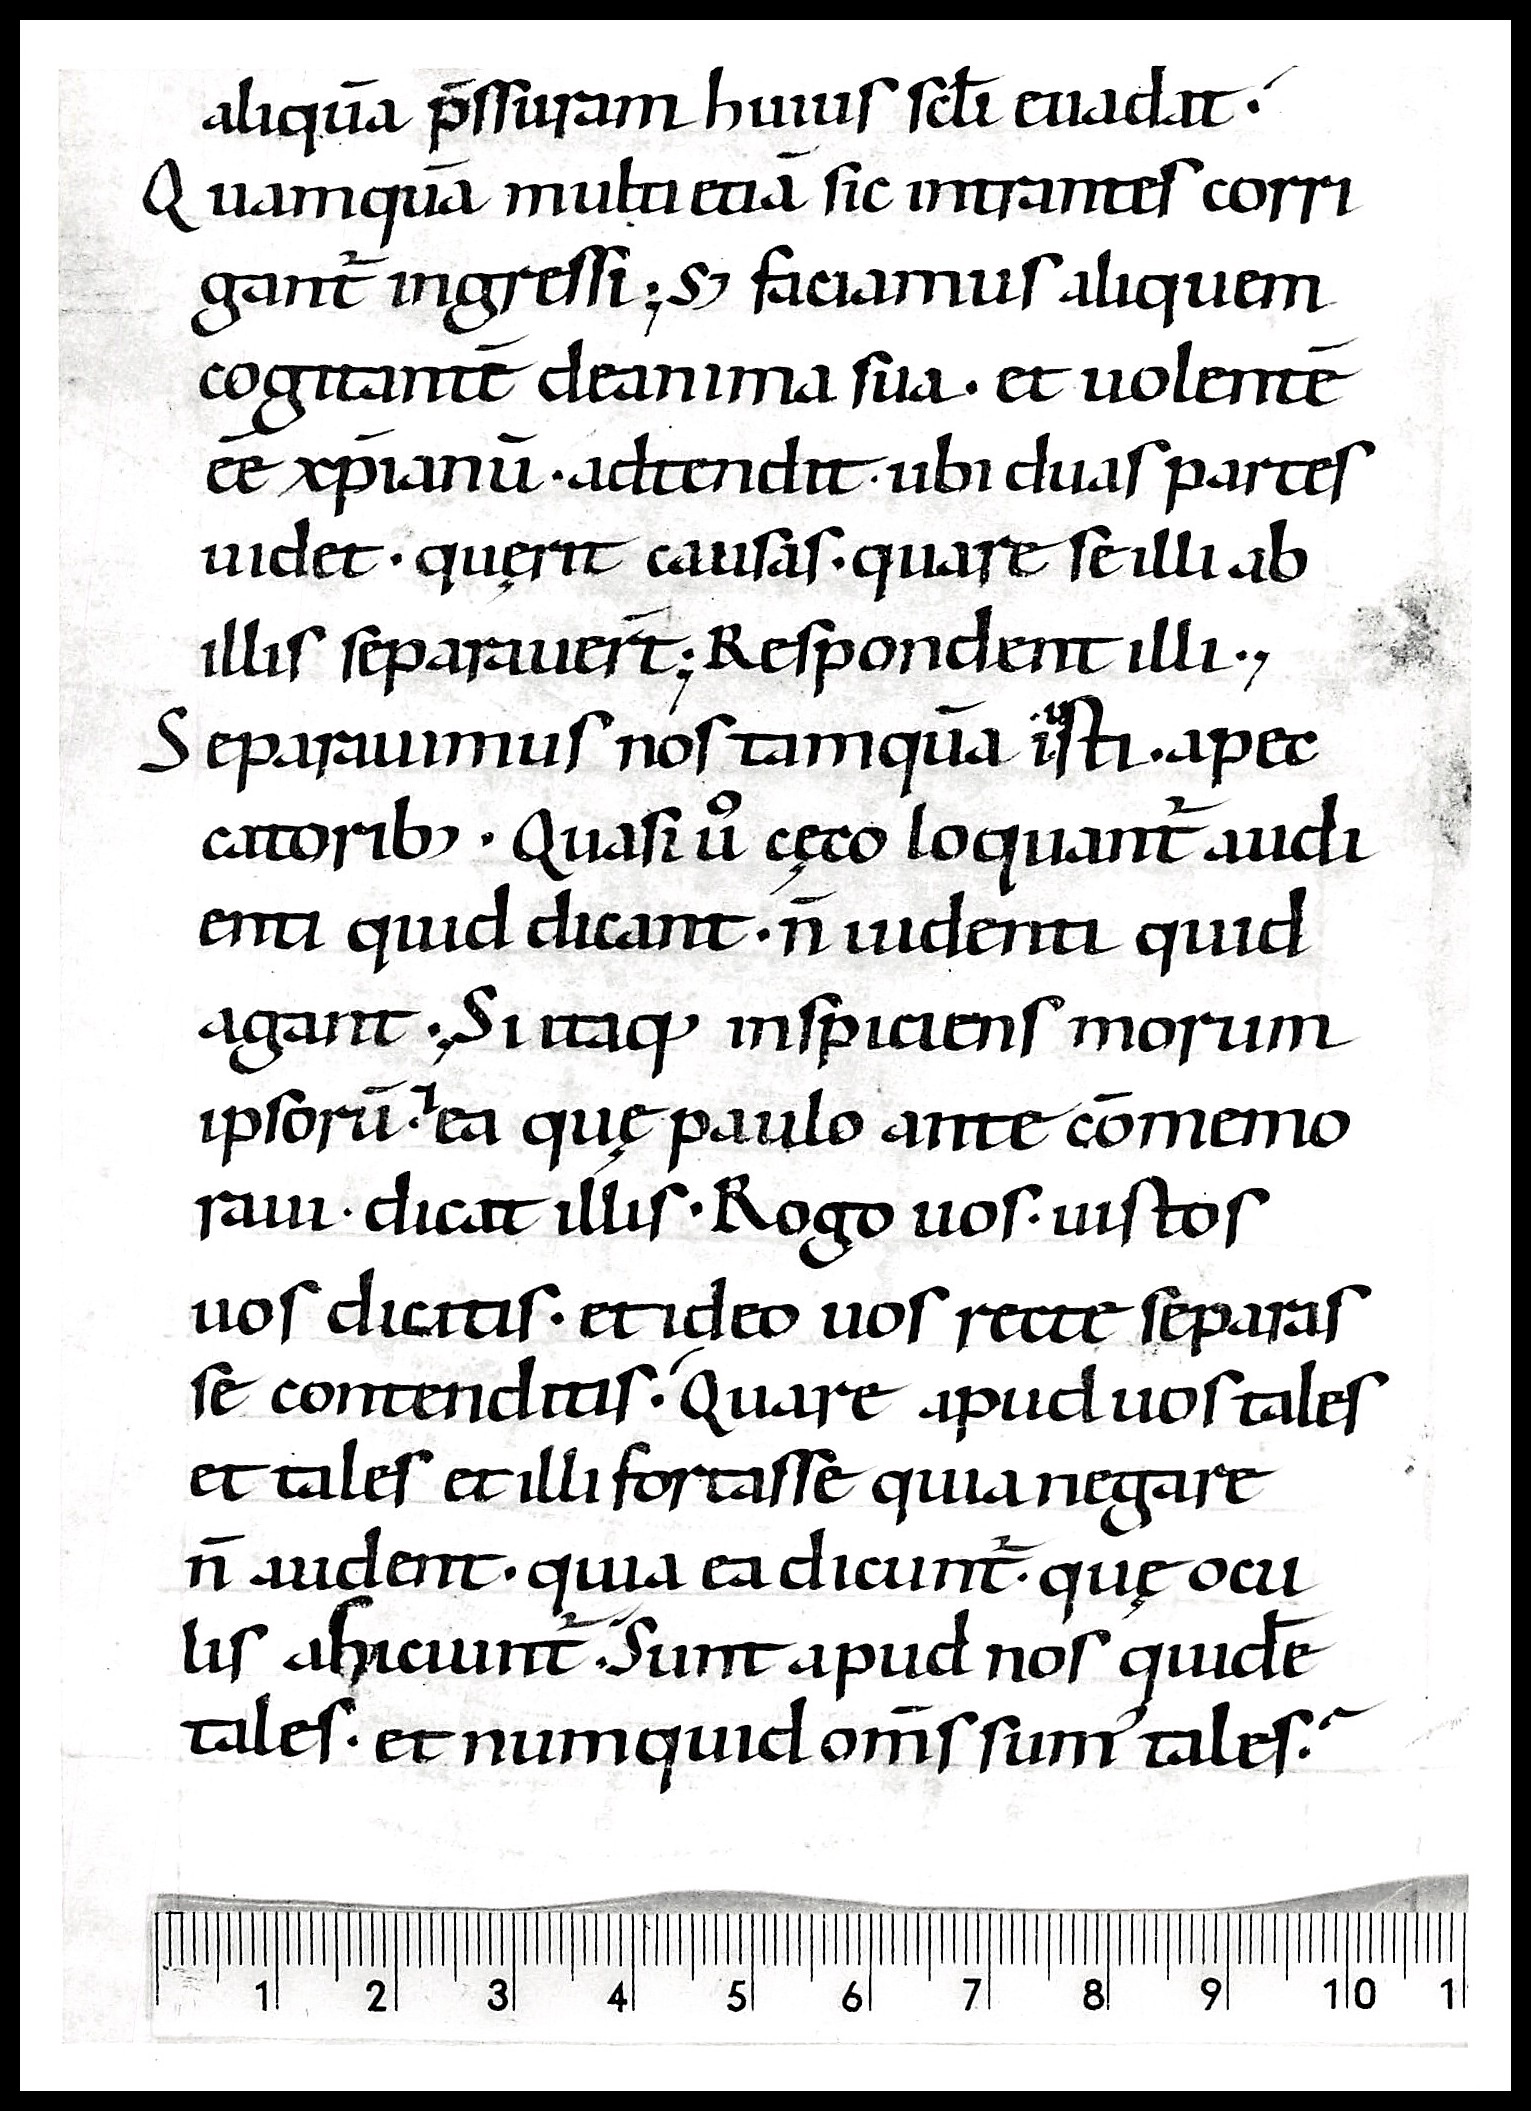 aliquā p̄ssuram huius scl̄i euadat·
Quamquā multi etiā sic intrantes corri
gant᷑ ingressi; S; faciamus aliquem
cogitantē deanima sua· et uolentē
ēē xp̄ianū· adtendit· ubi duas partes
uidet· quęrit causas· quare se illi ab
illis separauer̄t; Respondent illi·,
Separauimus nos tamquā iusti· apec
catorib;· Quasi ů cęco loquant᷑ audi
enti quid dicant· n̄ uidenti quid
agant; Si itaq; inspiciens morum
ipsorū· ea quę paulo ante cōmemo
raui· dicat illis· Rogo uos· iustos
uos dicitis· et ideo uos recte separas
se contenditis· Quare apud uos tales
et tales et illi fortasse quia negare
n̄ audent· quia ea dicunt᷑· quę ocu
lis ahiciunt᷑· Sunt apud nos quidē
tales· et numquid om̄s sum᾽ tales·
1 2 3 4 5 6 7 8 9 10 1